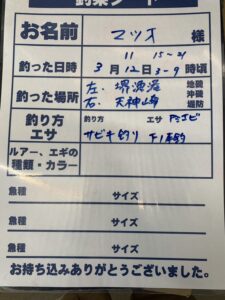 釣果シート
お名前 マツオ 様
11 15~21
釣った日時 3月12日3~9時頃
釣った場所 左.堺漁港 地磯
右.天神崎 沖磯
堤防
釣り方 エサ 釣り方 エサ アミエビ
サビキ釣り
ルアー、エギの
種類・カラー
魚種 サイズ
魚種 サイズ
魚種 サイズ
お持ち込みありがとうございました。